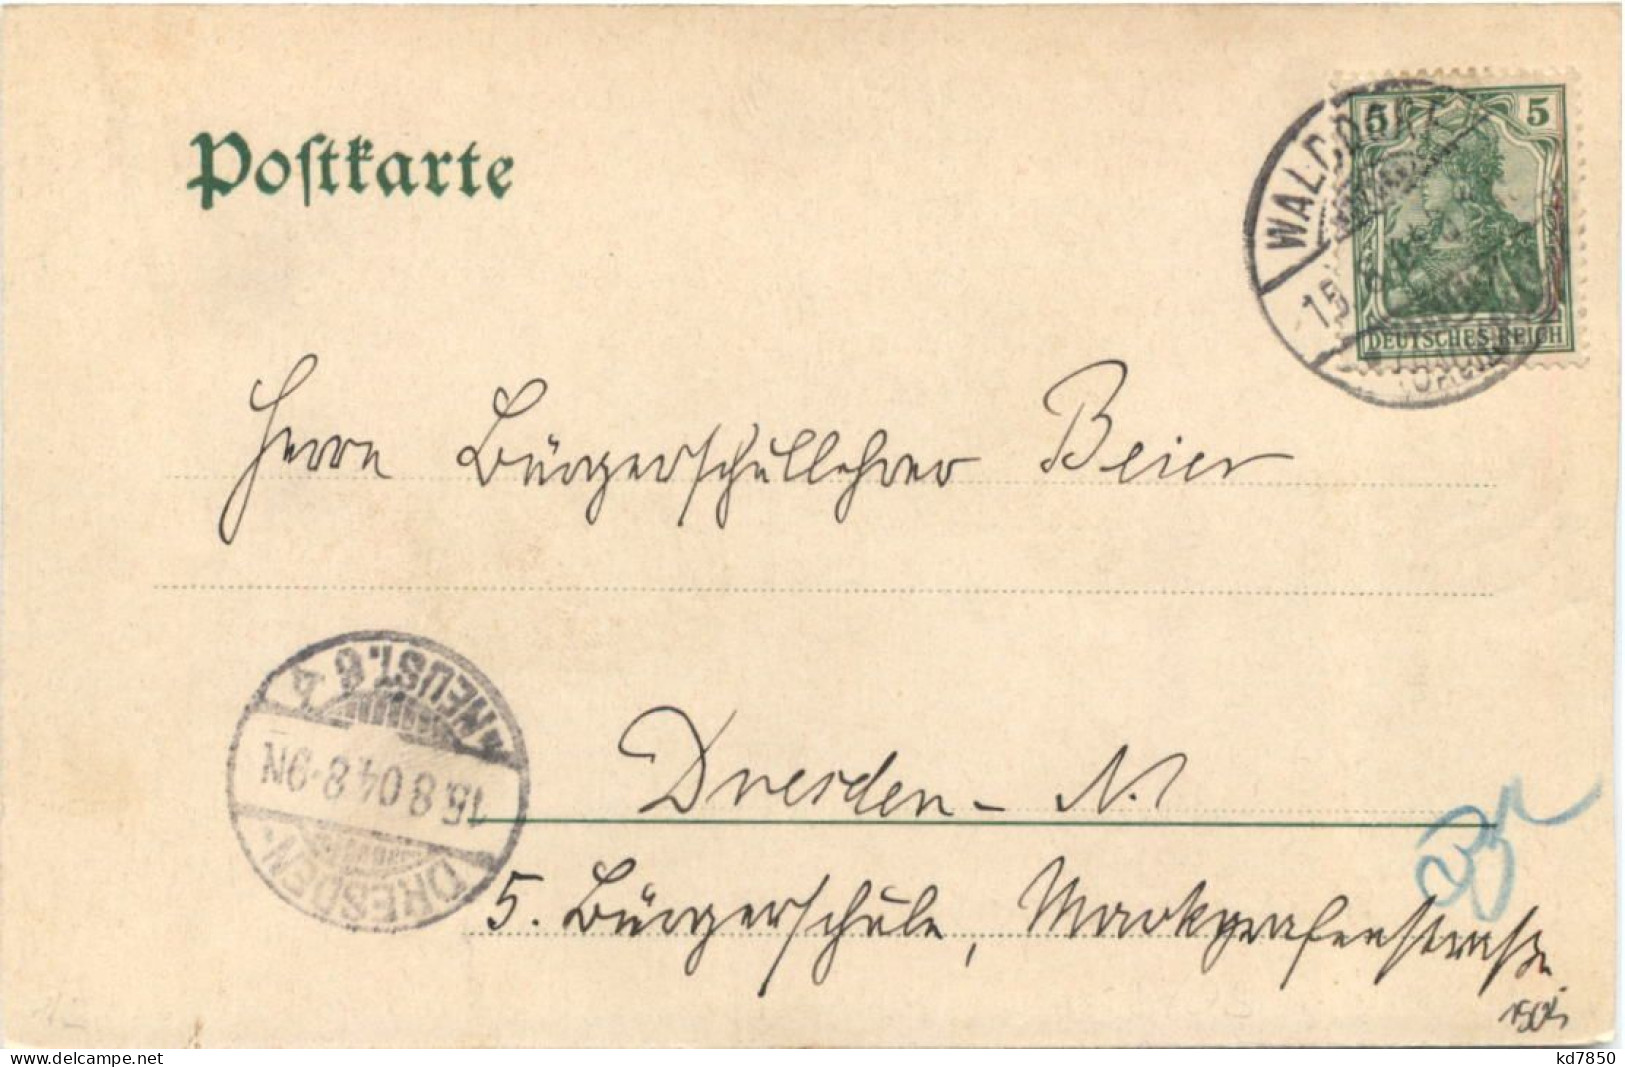 Postkarte
5 5
DEUTSCHES REICH
WALDORF
15
Herrn Bürgerschullehrer Beier
NEUST. 6
15.8.04.8-9N
DRESDEN
Dresden-N.
5. Bürgerschule, Markgrafenstraße
delcampe.net
kd7850